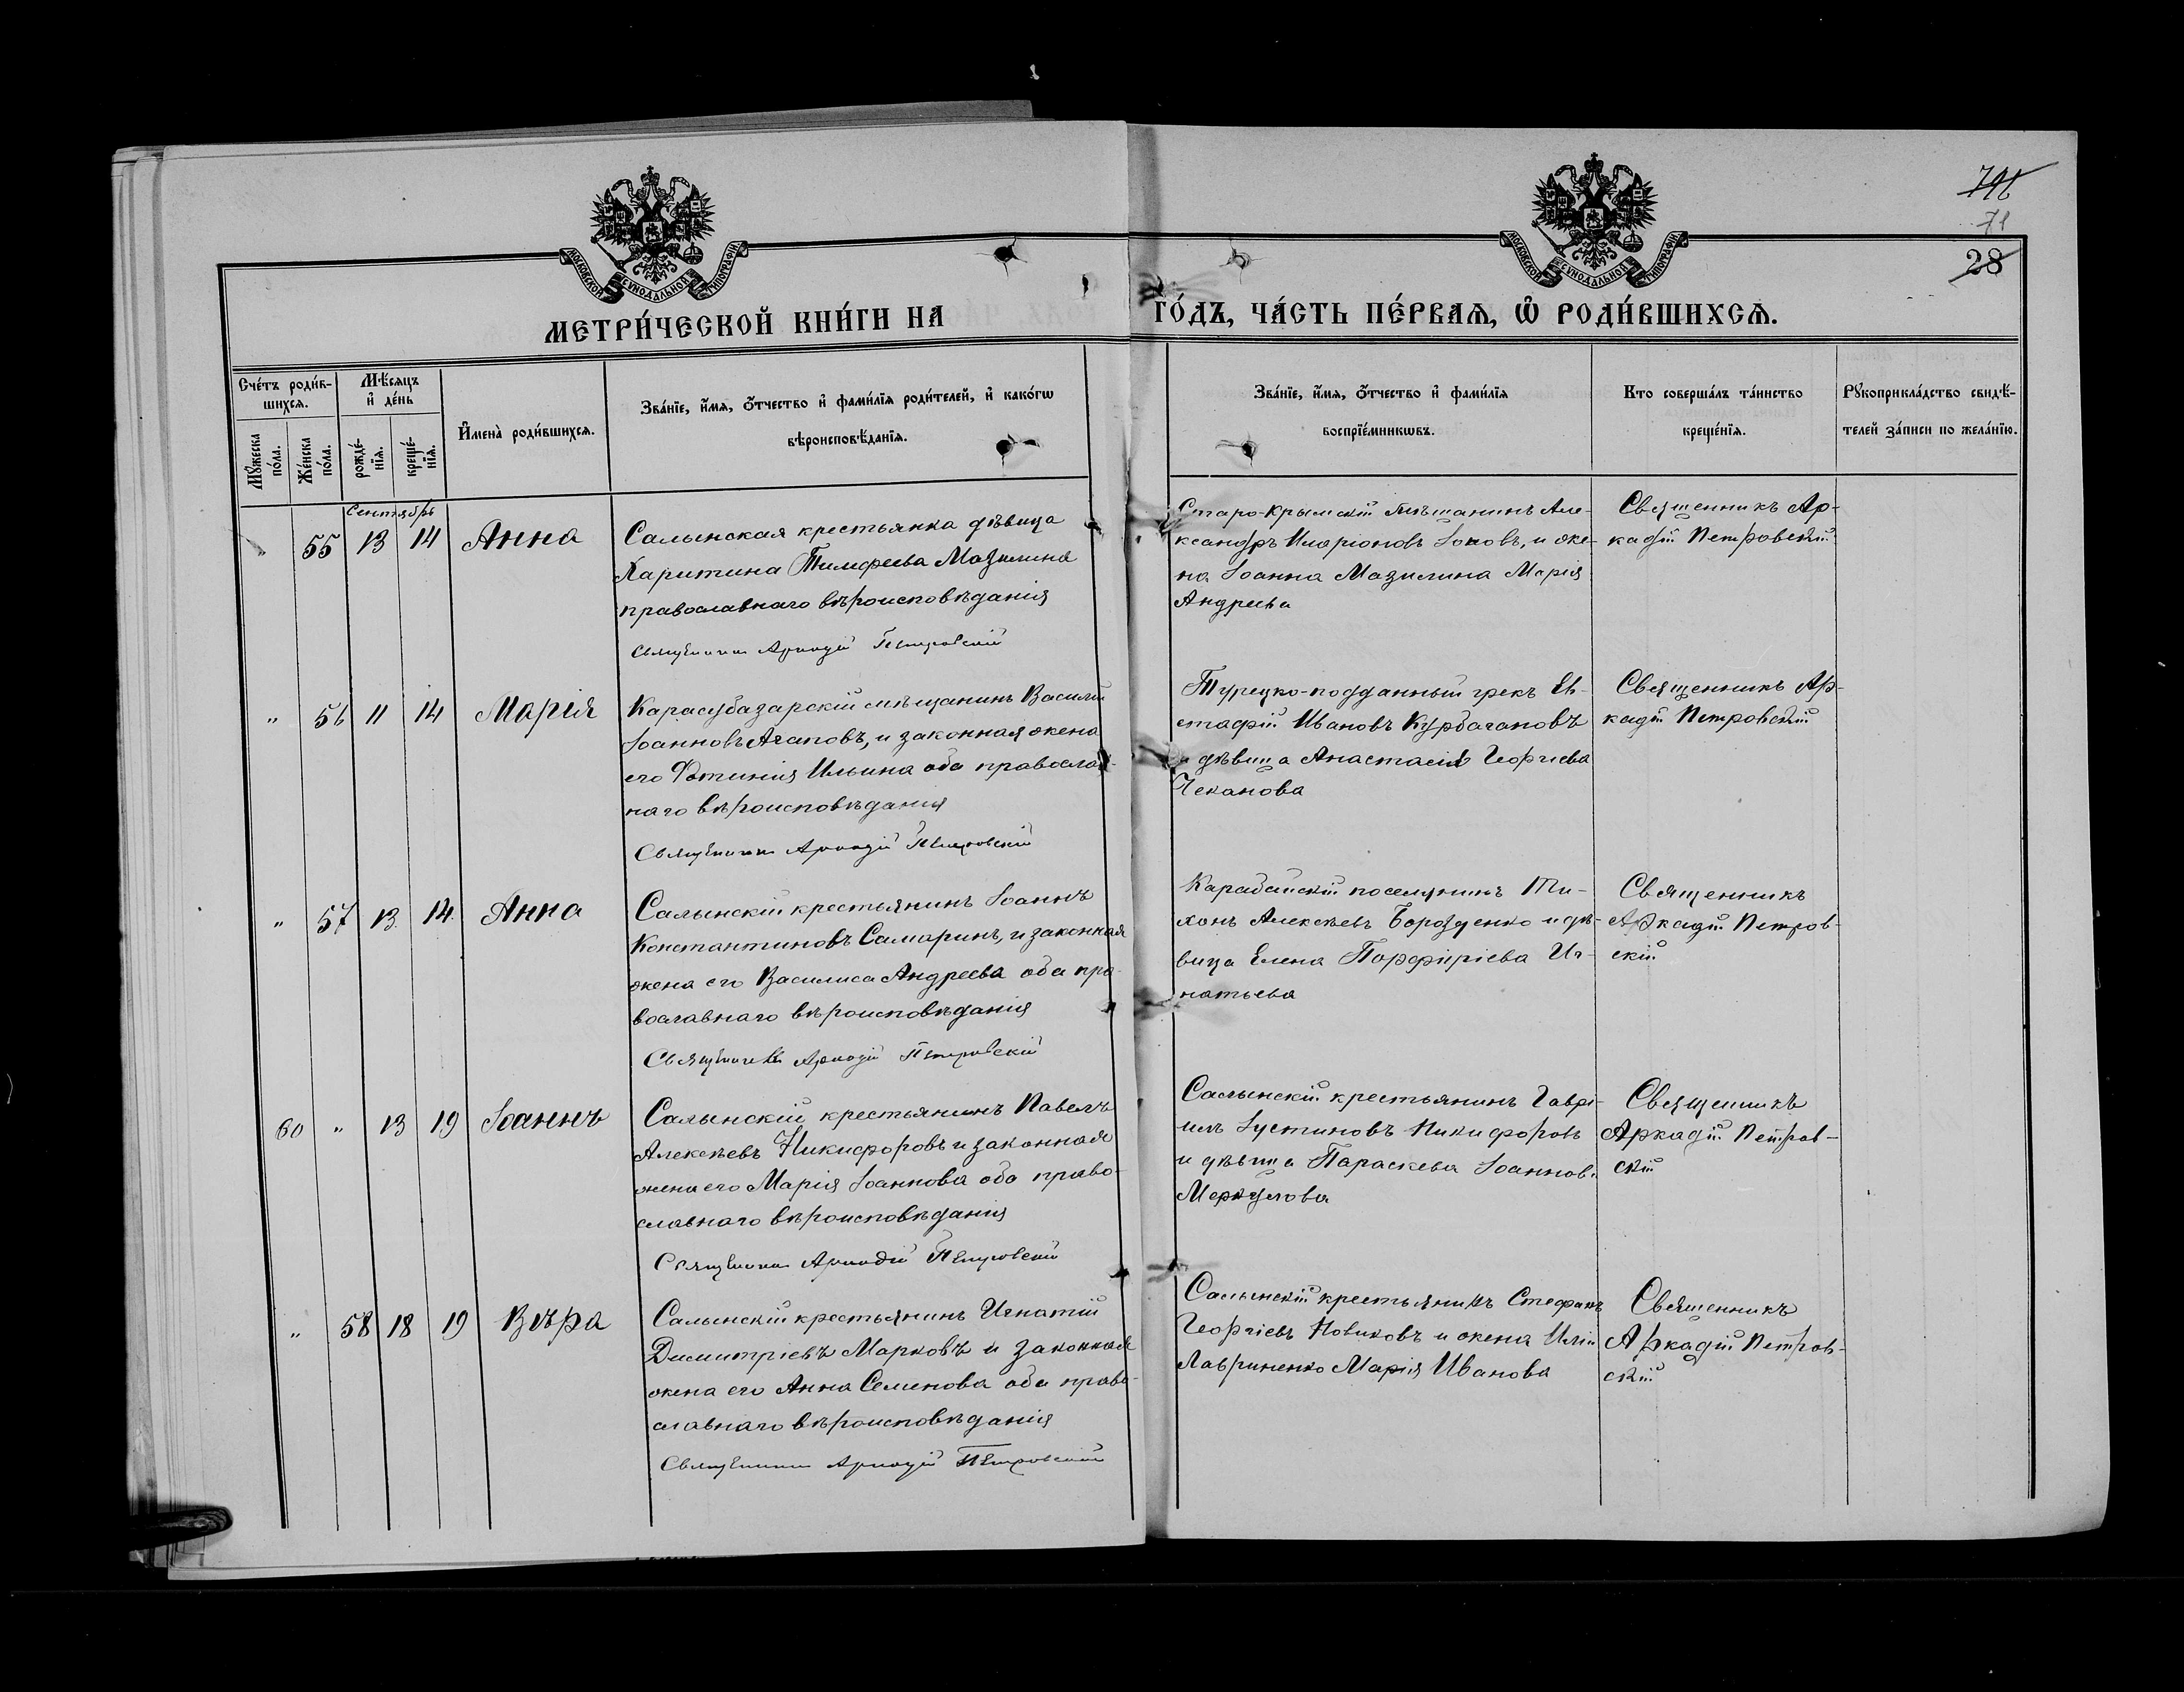 71
28
МОСКОВСКОЙ СУНОДАЛЬНОЙ ТИПОГРАФИИ
МОСКОВСКОЙ СУНОДАЛЬНОЙ ТИПОГРАФИИ
МЕТРИ́ЧЕСКОЙ КНИ́ГИ НА ГО́ДЪ, ЧА́СТЬ ПЕ́РВАѦ, Ѡ РОДИ́ВШИХСѦ.
Сче́тъ роди́в-
шихсѧ.
Мꙋжеска по́ла.
Же́нска по́ла.
Мѣ́сѧцъ
и҆ де́нь
рожде́-
нїѧ.
креще́-
нїѧ.
И҆мена̀ роди́вшихсѧ.
Зва́нїе, и҆́мѧ, ѻ҆́тчество и҆ фами́лїѧ роди́телей, и҆ како́гѡ
вѣроисповѣ́данїѧ.
Зва́нїе, и҆́мѧ, ѻ҆́тчество и҆ фами́лїѧ
воспрїе́мникѡвъ.
Кто соверша́лъ та́инство
креще́нїѧ.
Рꙋкоприкла́дство свидѣ́-
телей за́писи по жела́нїю.
Сентябрь
55 13 14 Анна
Салынская крестьянка дѣвица
Харитина Тимофеева Мазилина
православнаго вѣроисповѣданія
Священникъ Аркадій Петровскій
Старо-Крымскій мѣщанинъ Але-
ксандръ Иларіоновъ Зоковъ, и же-
на Іоанна Мазилина Марія
Андреева
Священникъ Ар-
кадій Петровскій
" 56 11 14 Марія
Карасубазарскій мѣщанинъ Василій
Іоанновъ Агаповъ, и законная жена
его Фотинія Ильина оба православ-
наго вѣроисповѣданія
Священникъ Аркадій Петровскій
Турецко-подданный грекъ Ев-
стафій Ивановъ Курбачановъ
и дѣвица Анастасія Георгіева
Чеканова
Священникъ Ар-
кадій Петровскій
" 57 13 14 Анна
Салынскій крестьянинъ Іоаннъ
Константиновъ Самаринъ, и законная
жена его Василиса Андреева оба пра-
вославнаго вѣроисповѣданія
Священникъ Аркадій Петровскій
Карабайскій поселянинъ Ти-
хонъ Алексѣевъ Борозденко и дѣ-
вица Елена Порфиріева Иг-
натьева
Священникъ
Аркадій Петров-
скій
60 " 13 19 Іоаннъ
Салынскій крестьянинъ Павелъ
Алексѣевъ Никифоровъ и законная
жена его Марія Іоаннова оба право-
славнаго вѣроисповѣданія
Священникъ Аркадій Петровскій
Салынскій крестьянинъ Гаврі-
илъ Іустиновъ Никифоровъ
и дѣвица Параскева Іоаннов.
Меркулова
Священникъ
Аркадій Петров-
скій
" 58 18 19 Вѣра
Салынскій крестьянинъ Игнатій
Димитріевъ Марковъ и законная
жена его Анна Семенова оба право-
славнаго вѣроисповѣданія
Священникъ Аркадій Петровскій
Салынскій крестьянинъ Стефанъ
Георгіевъ Новиковъ и жена Иліи
Лавриненко Марія Иванова
Священникъ
Аркадій Петров-
скій